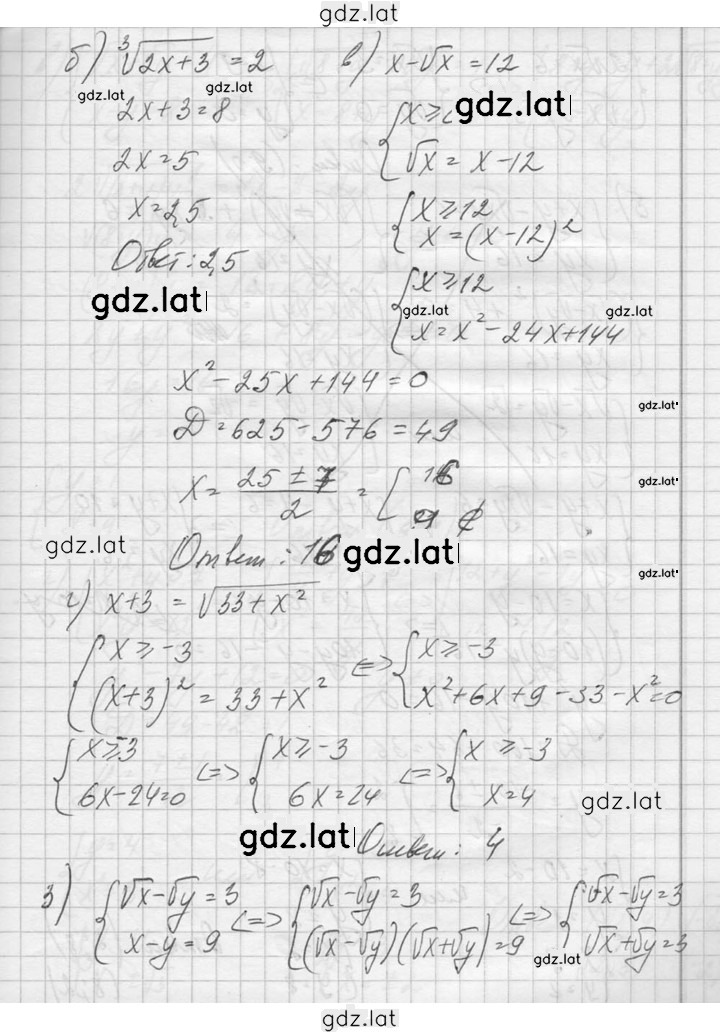 gdz.lat
б) ∛(2x+3) = 2
gdz.lat gdz.lat
2x+3=8
2x=5
x=2,5
Ответ: 2,5
gdz.lat
в) x-√x = 12
gdz.lat
{ x≥
√x = x-12
{ x≥12
x=(x-12)²
{ x≥12
gdz.lat gdz.lat
x=x²-24x+144
x²-25x+144=0
gdz.lat
D=625-576=49
x= (25±7)/2 = [ 16
gdz.lat
gdz.lat
Ответ: 16
gdz.lat
gdz.lat
г) x+3 = √(33+x²)
{ x≥-3
(x+3)²=33+x²
<=> { x≥-3
x²+6x+9-33-x²=0
{ x≥3
6x-24=0
<=> { x≥-3
6x=24
<=> { x≥-3
x=4
gdz.lat
gdz.lat
Ответ: 4
3) { √x-√y=3
x-y=9
<=> { √x-√y=3
(√x-√y)(√x+√y)=9
<=> { √x-√y=3
√x+√y=3
gdz.lat
gdz.lat